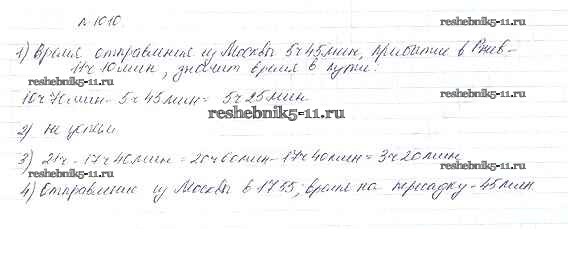 № 1010.
1) Время отправления из Москвы 5ч 45мин, прибытие в Ржев -
11ч 10мин, значит время в пути:
reshebnik5-11.ru
reshebnik5-11.ru
10ч 70мин - 5ч 45мин = 5ч 25мин
reshebnik5-11.ru
2) не успеем
3) 21ч - 17ч 40мин = 20ч 60мин - 17ч 40мин = 3ч 20мин
reshebnik5-11.ru
reshebnik5-11.ru
4) Отправление из Москвы в 17 55, время на пересадку - 45мин
reshebnik5-11.ru